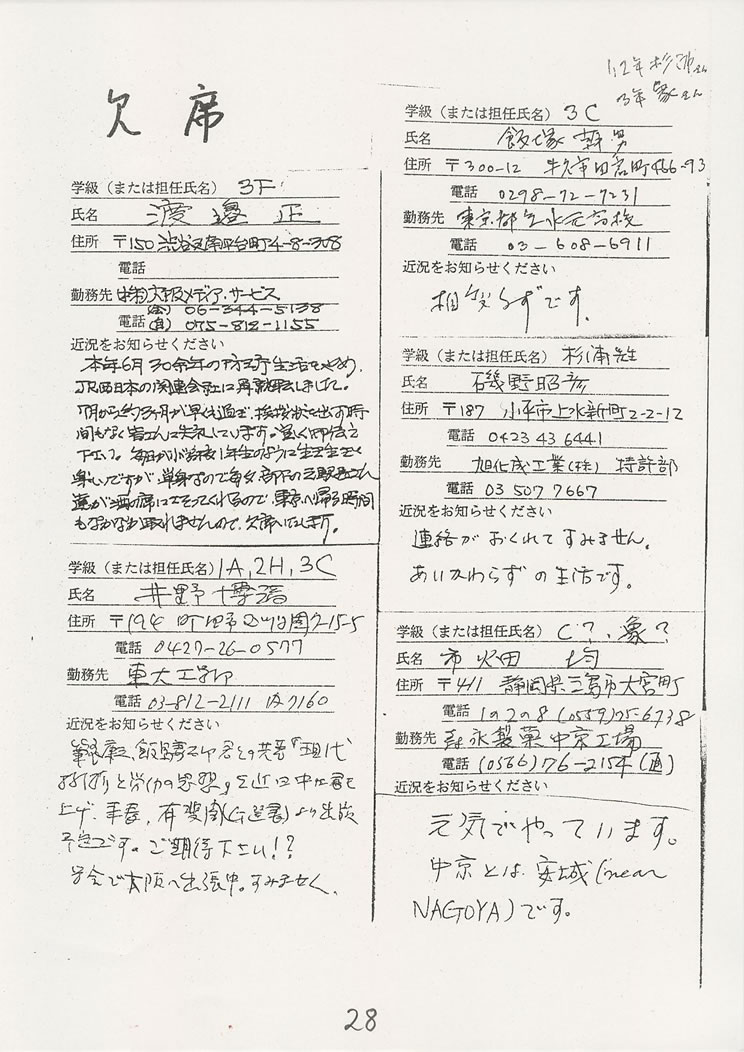 欠席
学級（または担任氏名）3F
氏名 渡邉 正
住所 〒150 渋谷区南平台町4-8-308
電話
勤務先 (株)大阪メディア・サービス
(会) 06-344-5138
電話 (自) 075-812-1155
近況をお知らせください
本年6月30余年の 生活をやめ、
JR西日本の関連会社に再就職しました。
7月から約3ヶ月が早くも過ぎ、挨拶状を出す時
間もなく皆さんに失礼しています。
下さい。毎日が小学校1年生のように
ですが、単身なので毎夕部下の
達が酒の席にさそってくれるので、東京へ帰る時間
もなかなか取れませんので、欠席いたします。
学級（または担任氏名）1A, 2H, 3C
氏名 井野博満
住所 〒194 町田市つくし野2-15-5
電話 0427-26-0577
勤務先 東大工学部
電話 03-812-2111 内7160
近況をお知らせください
君との共著『現代
技術と労働の思想』を近日中に書き
上げ、来春、有斐閣(G選書)より出版
予定です。ご期待下さい!?
学会で大阪へ出張中。すみません。
1,2年 杉浦さん
3年 象さん
学級（または担任氏名）3C
氏名 飯塚 男
住所 〒300-12 牛久市田宮町466-93
電話 0298-72-7231
勤務先 東京都立水元高校
電話 03-608-6911
近況をお知らせください
相変らずです。
学級（または担任氏名）杉浦先生
氏名 磯野昭彦
住所 〒187 小平市上水新町2-2-12
電話 0423 43 6441
勤務先 旭化成工業(株) 特許部
電話 03 507 7667
近況をお知らせください
連絡がおくれてすみません。
あいかわらずの生活です。
学級（または担任氏名）C?、象?
氏名 市火田 均
住所 〒411 静岡県三島市大宮町
電話 1の2の8 (0559)75-6738
勤務先 森永製菓中京工場
電話 (0566)76-2154(直)
近況をお知らせください
元気でやっています。
中京とは、安城(near
NAGOYA)です。
28